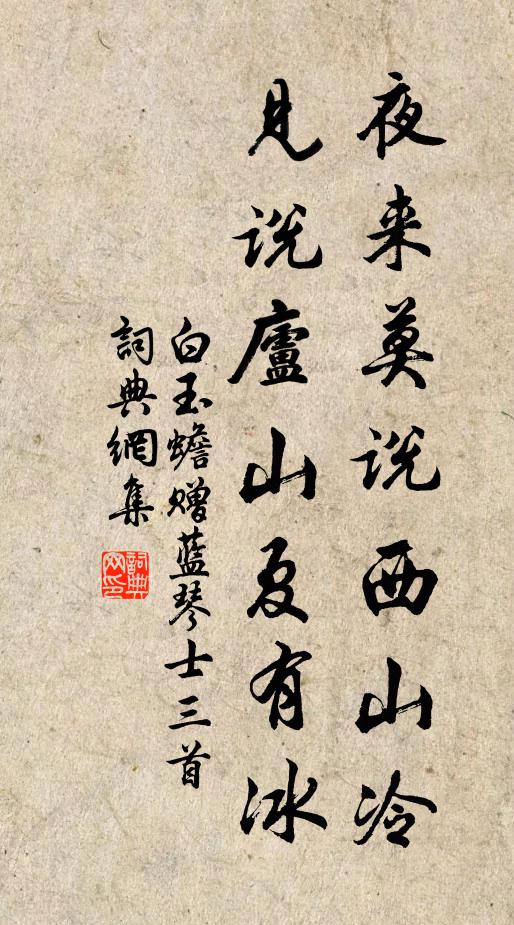 夜来莫说西山冷
见说廬山夏有冰
白玉蟾赠蓝琴士三首
詞典網集
詞典网印